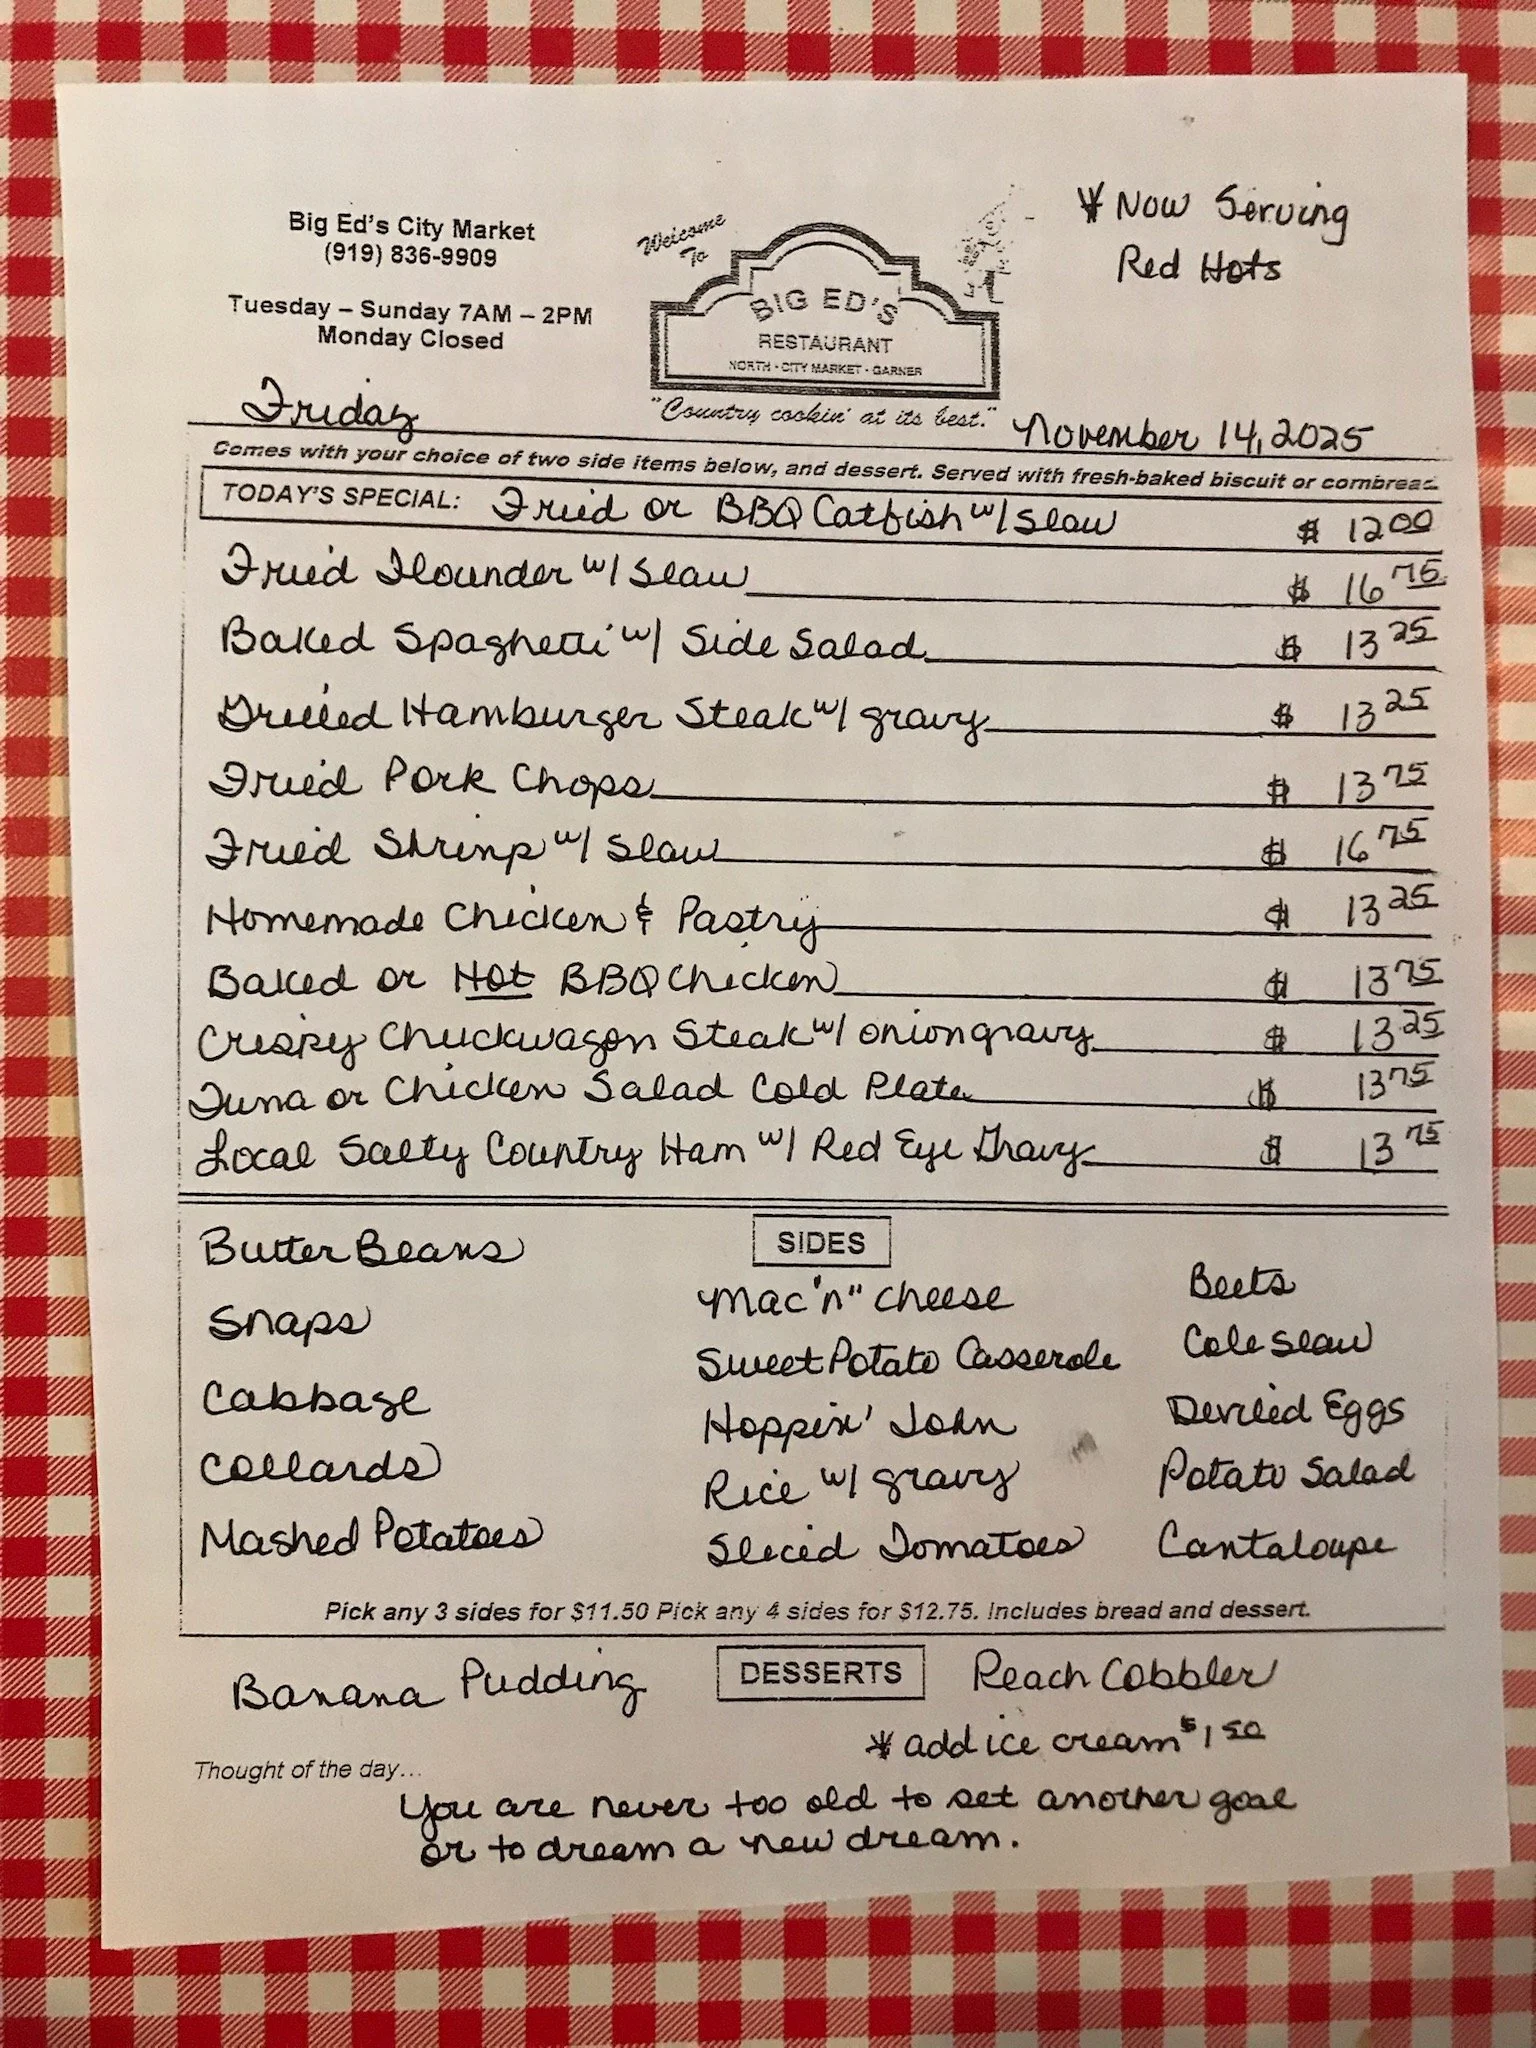 Big Ed's City Market
(919) 836-9909
Tuesday – Sunday 7AM – 2PM
Monday Closed
Welcome
To
BIG ED'S
RESTAURANT
NORTH - CITY MARKET - GARNER
"Country cookin' at its best."
* Now Serving
Red Hots
Friday
November 14, 2025
Comes with your choice of two side items below, and dessert. Served with fresh-baked biscuit or cornbread.
TODAY'S SPECIAL: Fried or BBQ Catfish w/ Slaw $ 12 00
Fried Flounder w/ Slaw $ 16 75
Baked Spaghetti w/ Side Salad $ 13 25
Grilled Hamburger Steak w/ gravy $ 13 25
Fried Pork Chops $ 13 75
Fried Shrimp w/ Slaw $ 16 75
Homemade Chicken & Pastry $ 13 25
Baked or Hot BBQ Chicken $ 13 75
Crispy Chuckwagon Steak w/ onion gravy $ 13 25
Tuna or Chicken Salad Cold Plate $ 13 75
Local Salty Country Ham w/ Red Eye Gravy $ 13 75
SIDES
Butter Beans
Snaps
Cabbage
Collards
Mashed Potatoes
Mac 'n" Cheese
Sweet Potato Casserole
Hoppin' John
Rice w/ gravy
Sliced Tomatoes
Beets
Cole Slaw
Deviled Eggs
Potato Salad
Cantaloupe
Pick any 3 sides for $11.50 Pick any 4 sides for $12.75. Includes bread and dessert.
DESSERTS
Banana Pudding
Peach Cobbler
* add ice cream $1 50
Thought of the day...
You are never too old to set another goal
or to dream a new dream.